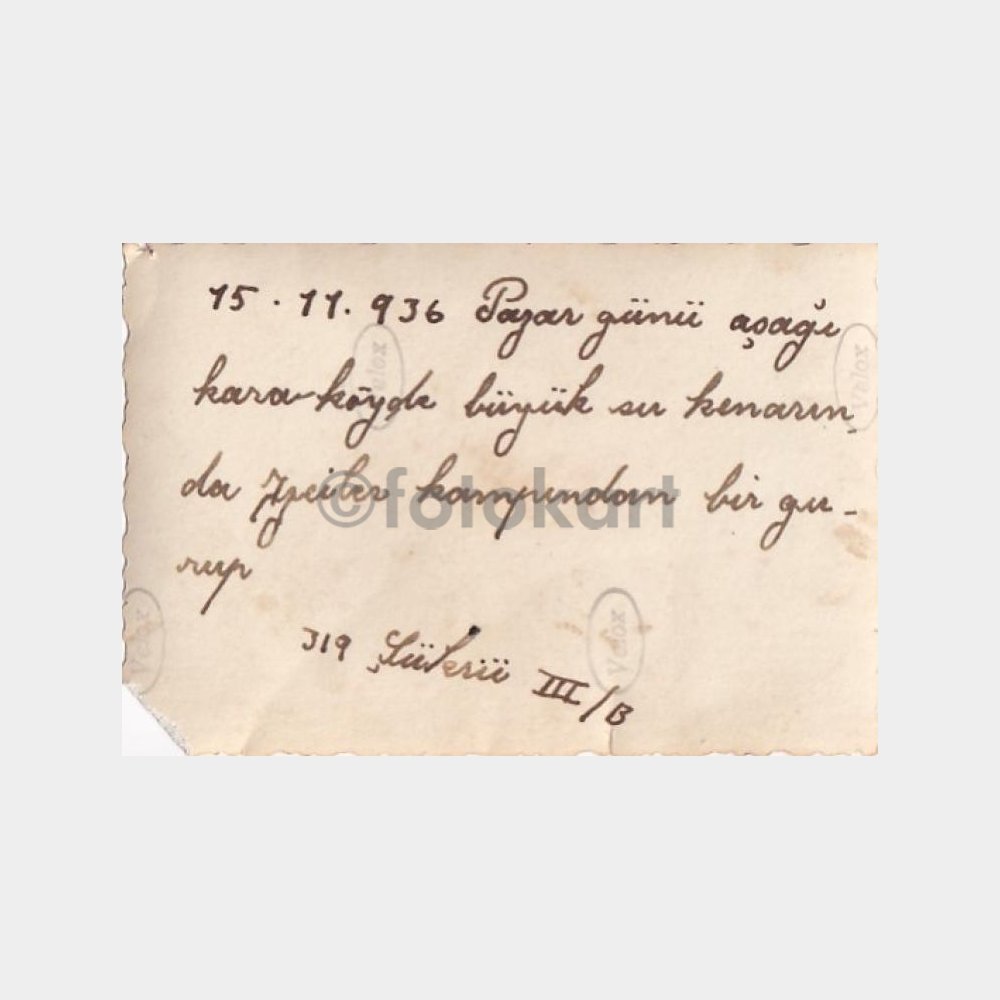 15.11.936 Pazar günü aşağı
kara-köyde büyük su kenarın-
da kampından bir gu-
rup
319 III/B
©fotokart
Velox
Velox
Velox
Velox